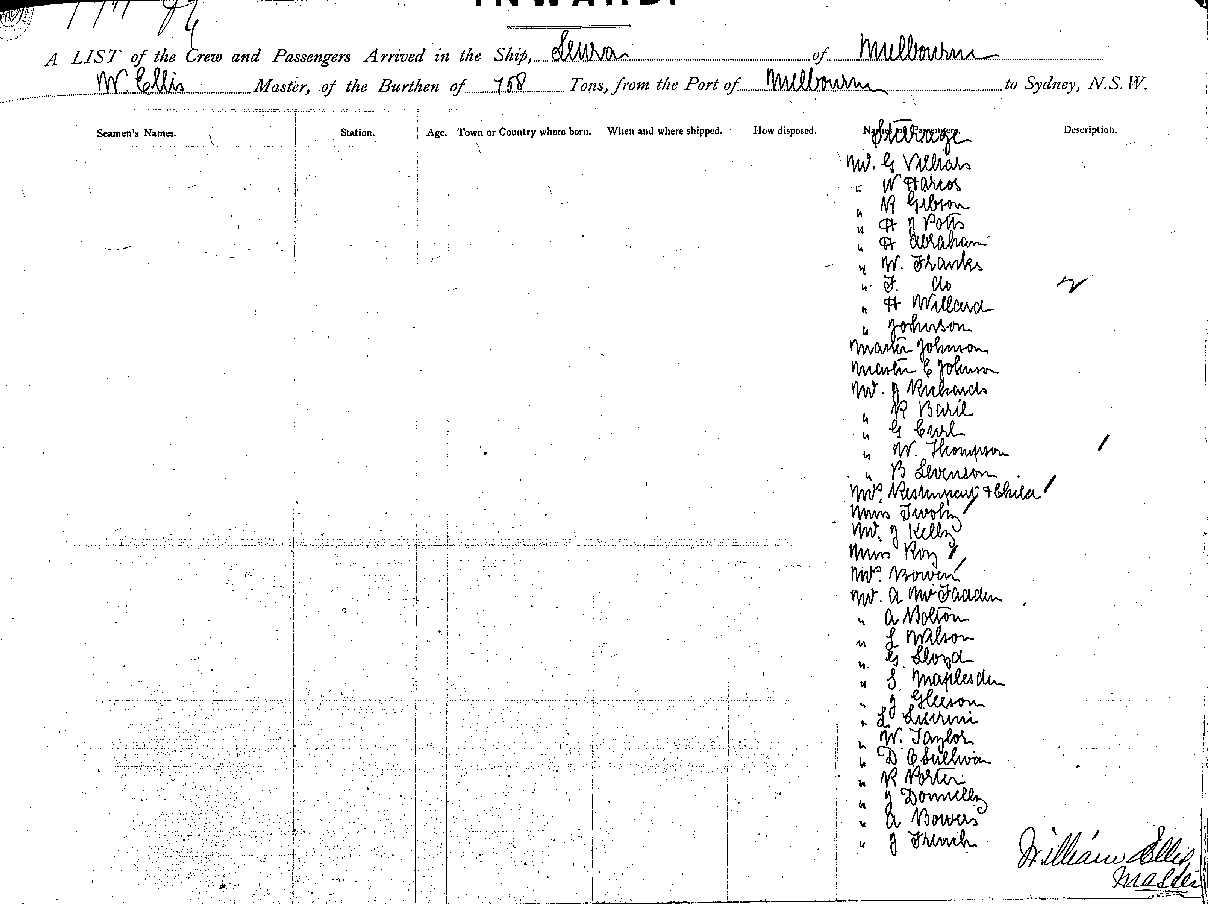 INWARD.
A LIST of the Crew and Passengers Arrived in the Ship, Leura of Melbourne
W Ellis Master, of the Burthen of 758 Tons, from the Port of Melbourne to Sydney, N.S.W.
Seamen's Names. Station. Age. Town or Country where born. When and where shipped. How disposed. Names of Passengers. Description.
Steerage
Mr. G Villiars
" W Harcos
" R Gibson
" H J Potts
" H Abraham
" W. Franks
" F. do
" H Willard
" Johnson
Master Johnson
Master E Johnson
Mr. J Richards
" R Baril
" G Curl
" W. Thompson
" B Levenson
Mrs & Child
Miss
Mr. J Kelly
Miss Roy
Mrs Bowen
Mr. A McFadden
" A Bolton
" L Wilson
" G. Lloyd
" S Maplesden
" J Gleeson
" L
" W. Taylor
" D OSullivan
" R Porter
" J Donnelly
" A Bowers
" J French
William Ellis
Master